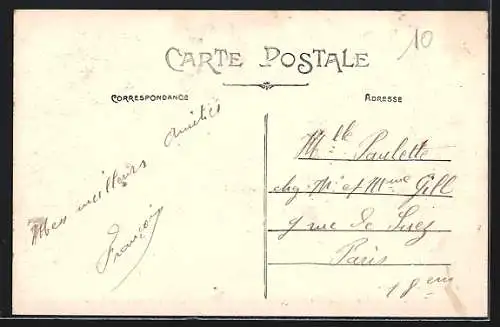 10
CARTE POSTALE
CORRESPONDANCE
ADRESSE
Mes meilleurs amitiés
François
Mlle Paulette
chez Mr et Mme Gill
9 rue de Suez
Paris
18em